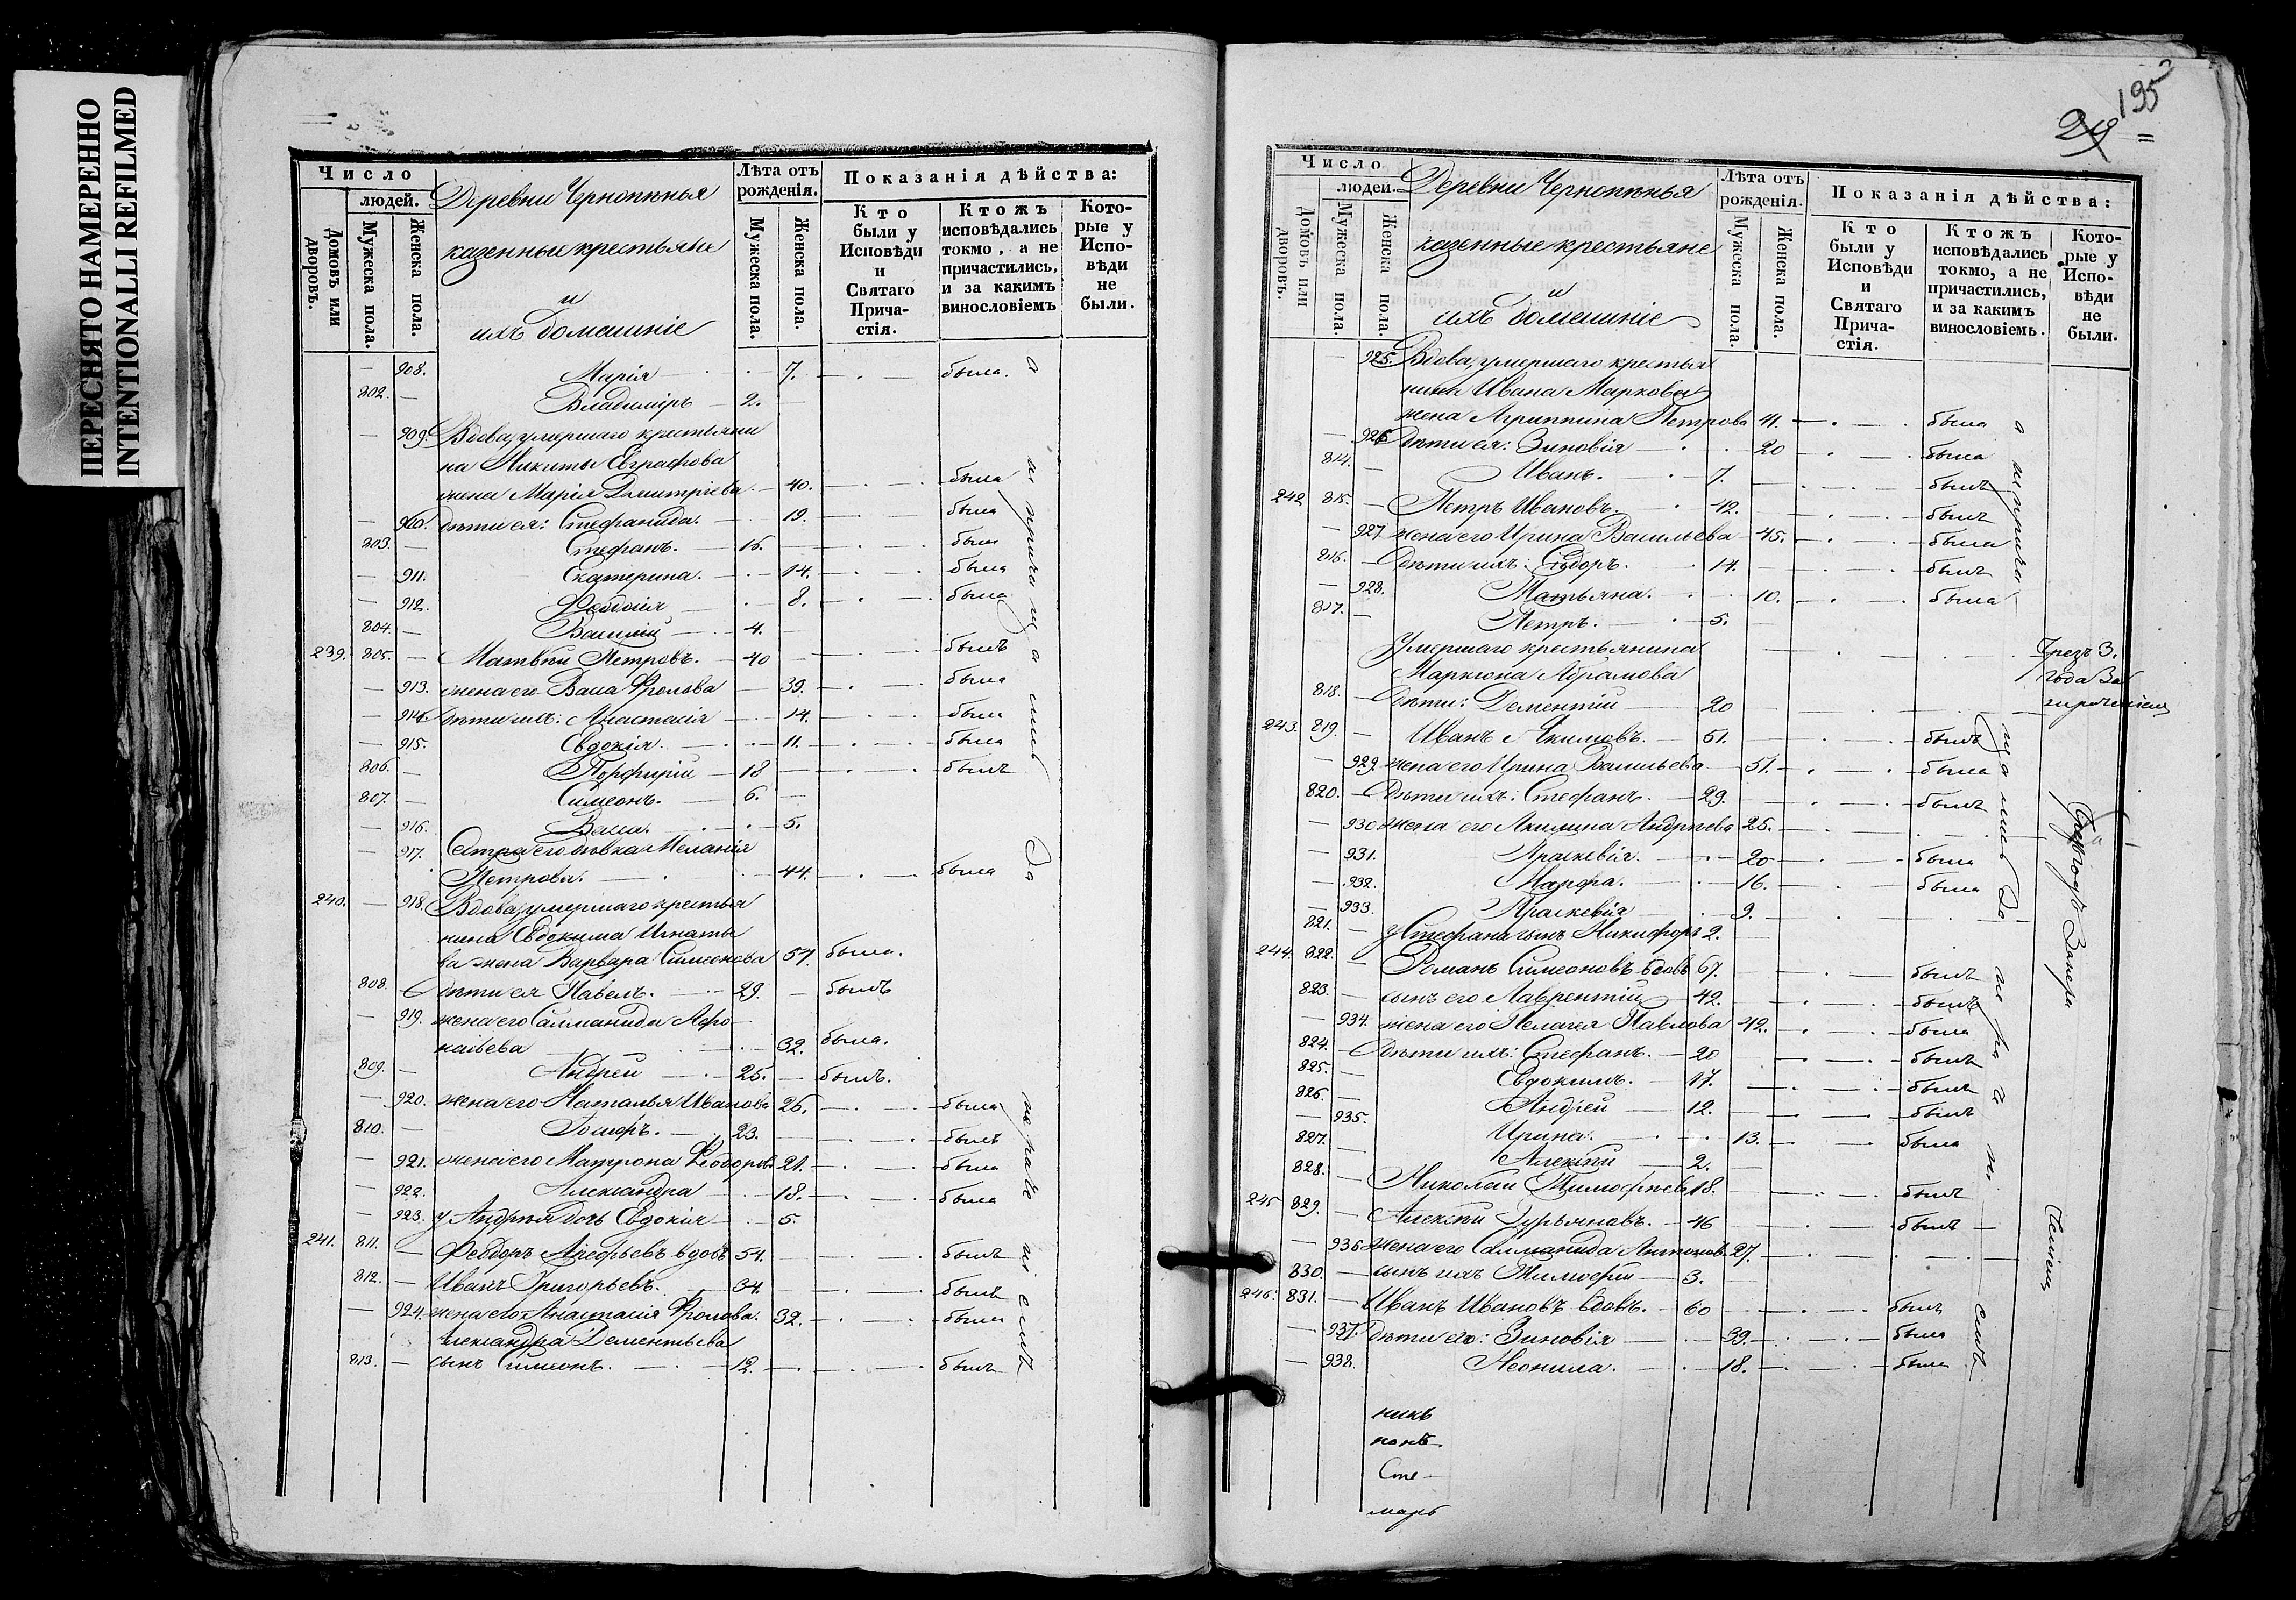 ПЕРЕСНЯТО НАМЕРЕННО
INTENTIONALLI REFILMED
Число
людей.
Домовъ или дворовъ.
Мужеска пола.
Женска пола.
Деревни
казенные крестьяне
и
ихъ домашніе
Лѣта отъ рожденія.
Мужеска пола.
Женска пола.
Показанія дѣйства:
Кто были у Исповѣди и Святаго Прича- стія.
Ктожъ исповѣдались токмо, а не причастились, и за какимъ винословіемъ
Кото- рые у Испо- вѣди не были.
— 908. Марія — 7. — была.
802. — Владиміръ — 2. —
— 909. Вдова, умершаго крестьяни
на Никиты Евграфова
жена Марія Димитріева — 40. — была
— 910. дѣти ея: Стефанида. — 19. — была
803. — Стефанъ. — 16. — былъ
— 911. Екатерина. — 14. — была
— 912. Ѳеодосія — 8. — была
804. — Василій — 4. —
239. 805. — Матвѣй Петровъ. — 40 — былъ
— 913. жена его Васа Фролова — 39. — была
— 914. дѣти ихъ: Анастасія — 14. — была
— 915. Евдокія. — 11. — была
806. — Порфирій — 18 — былъ
807. — Симеонъ. — 6. —
— 916. Васа. — 5.
— 917. Сестра его дѣвка Меланія
Петрова. — 44. — была
240. — 918. Вдова, умершаго крестья
нина Евдокима Игнатье
ва жена Варвара Симеонова 57. была.
808. — дѣти ея Павелъ. — 29. — былъ
— 919. жена его Саломанида Афо-
насьева — 32. была.
809. — Андрей — 25. — былъ.
— 920. жена его Наталья Иванова 26. — была
810. — — 23. — былъ
— 921. жена его Матрона Ѳеодорова 21. — была
— 922. Александра — 18. — была
— 923. у Андрея дочь Евдокія — 5.
241. 811. — Феодоръ вдовъ 54. — былъ
812. — Иванъ Григорьевъ. — 34. — былъ
— 924. жена его Анастасія Фролова. 32. — была
Александра Дементьева
813. — сынъ Симеонъ. — 12. — былъ
195
Число
людей.
Домовъ или дворовъ.
Мужеска пола.
Женска пола.
Деревни
казенные крестьяне
и
ихъ домашніе
Лѣта отъ рожденія.
Мужеска пола.
Женска пола.
Показанія дѣйства:
Кто были у Исповѣди и Святаго Прича- стія.
Ктожъ исповѣдались токмо, а не причастились, и за какимъ винословіемъ.
Кото- рые у Испо- вѣди не были.
— 925. Вдова, умершаго крестья
нина Ивана Маркова
жена Агриппина Петрова 41. — была
— 926 дѣти ея: Зиновія — 20 — была
814. — Иванъ. — 7. — былъ
242 815. — Петръ Ивановъ. — 42. — былъ
— 927 жена его Ирина Васильева — 45. — была
816. — дѣти ихъ: Сидоръ. 14. — былъ
— 928. Татьяна. — 10. — была
817. — Петръ. — 5. —
Умершаго крестьянина
Маркіона Абрамова
818. — дѣти: Дементій — 20
Чрезъ 3.
года За
243. 819. — Иванъ Акимовъ. — 51. — былъ
— 929 жена его Ирина Васильева — 51. — была
820. — дѣти ихъ: Стефанъ. — 29. — былъ
— 930 жена его Акилина Андреева 25. —
— 931. Праскевія. — 20 — была
— 932. Марфа. — 16. — была
— 933. Праскевія — 9. —
821. — у Стефана сынъ Никифоръ 2. —
244. 822. — Романъ Симеоновъ вдовъ 67. — былъ
823. — сынъ его Лаврентій — 42. — былъ
— 934. жена его Пелагея Павлова 42. — была
824. — дѣти ихъ: Стефанъ. — 20 — былъ
825. — Евдокимъ. — 17. — былъ
826. — Андрей — 12. — былъ
— 935. Ирина. — 13. — была
827. — Алексѣй — 2. —
828. — Николай Тимофѣевъ 18. — былъ
245 829. — Алексѣй Гурьяновъ. — 46 — былъ
— 936 жена его Саломанида 27. —
830. — сынъ ихъ Тимофей — 3. —
246. 831. — Иванъ Ивановъ вдовъ. — 60 — былъ
— 937. дѣти его: Зиновія — 39. — была
— 938. Неонила. — 18. — была
никъ
понъ
Сте-
марь